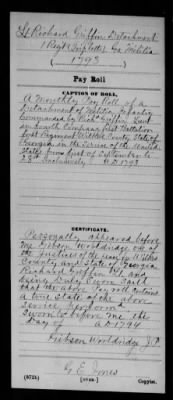 Lt Richard Griffin Detachment
1 Regt (Triplett) Ga Militia
1793
Pay Roll
CAPTION OF ROLL,
A Monthly Pay Roll of a
Detachment of Militia Infantry
Commanded by Richd Griffin Lieut
in fourth Company first Battalion
first Regiment of Wilkes County State of
Georgia in the Service of the United
States from first of September to
23d Inclusively A.D. 1793
CERTIFICATE.
Personally appeared before
me Gibson Wooldridge one of
the Justices of sd County Wilkes
County and State of Georgia
Richard Griffin Lt. and
being Duly Sworn Saith
that the above Pay roll contains
a true State of the above
Service Performed
Sworn to before me the
Day of A.D. 1794
Gibson Wooldridge J.P.
G E Jones
(572h)
Copyist.